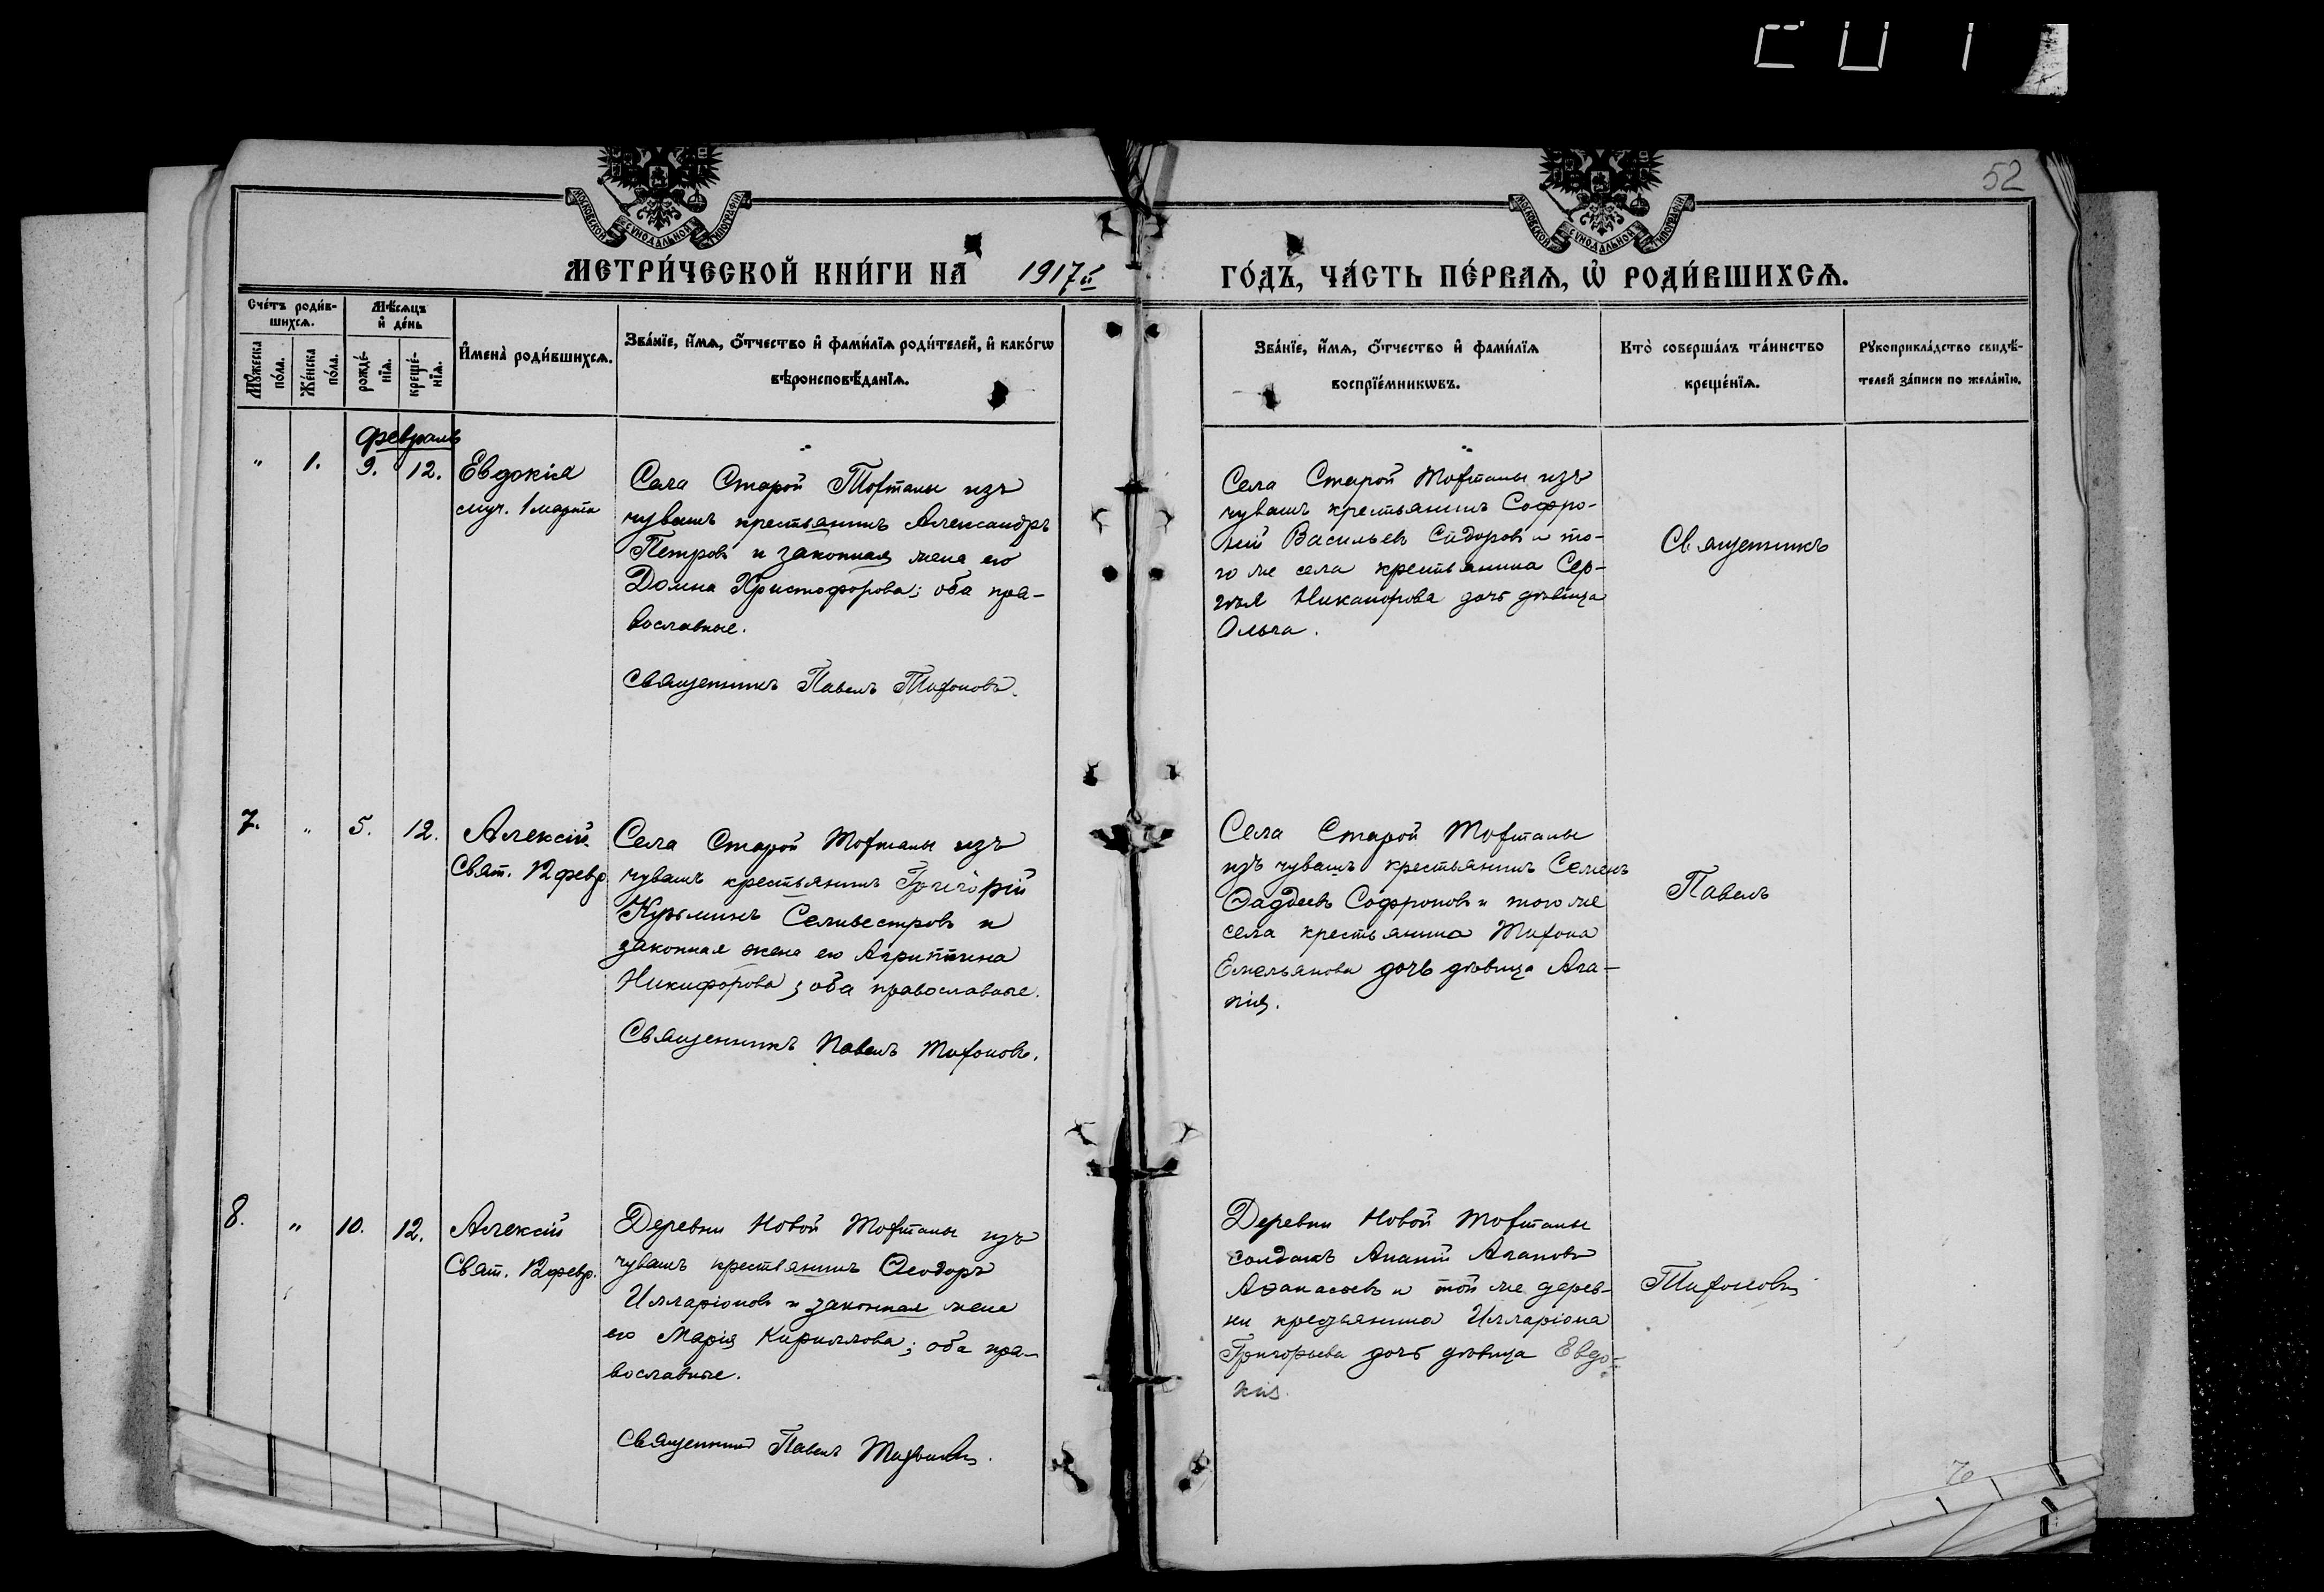 52
МОСКОВСКОЙ СѴНОДАЛЬНОЙ ТИПОГРАФІИ
МОСКОВСКОЙ СѴНОДАЛЬНОЙ ТИПОГРАФІИ
МЕТРИ́ЧЕСКОЙ КНИ́ГИ НА 1917й ГО́ДЪ, ЧА́СТЬ ПЕ́РВАѦ, Ѡ҆ РОДИ́ВШИХСѦ.
Сче́тъ роди́в-
шихсѧ.
Мꙋ́жеска
по́ла.
Же́нска
по́ла.
Мѣ́сѧцъ
и҆ де́нь
рожде́-
нїѧ.
креще́-
нїѧ.
И҆мена̀ роди́вшихсѧ.
Зва́нїе, и҆́мѧ, ѻ҆́тчество и҆ фами́лїѧ роди́телей, и҆ како́гѡ
вѣроисповѣ́данїѧ.
Зва́нїе, и҆́мѧ, ѻ҆́тчество и҆ фами́лїѧ
воспрїе́мникѡвъ.
Кто̀ соверша́лъ та́инство
креще́нїѧ.
Рꙋкоприкла́дство свидѣ́-
телей за́писи по жела́нїю.
Февраль
" 1. 9. 12. Евдокія
муч. 1 марта
Села Старой Тохталы изъ
чувашъ крестьянинъ Александръ
Петровъ и законная жена его
Домна Христофорова; оба пра-
вославные.
Священникъ Павелъ Тихоновъ.
Села Старой Тохталы изъ
чувашъ крестьянинъ Софро-
ній Васильевъ Сидоровъ и то-
го же села крестьянина Сер-
гѣя Никанорова дочь дѣвица
Ольга.
Священникъ
7. " 5. 12. Алексій.
Свят. 12 февр.
Села Старой Тохталы изъ
чувашъ крестьянинъ Григорій
Кузьминъ Селивестровъ и
законная жена его Агриппина
Никифорова; оба православные.
Священникъ Павелъ Тихоновъ.
Села Старой Тохталы
изъ чувашъ крестьянинъ Семенъ
Ѳаддеевъ Софроновъ и того же
села крестьянина Тихона
Емельянова дочь дѣвица Ага-
пія.
Павелъ
8. " 10. 12. Алексій
Свят. 12 февр.
Деревни Новой Тохталы изъ
чувашъ крестьянинъ Ѳеодоръ
Илларіоновъ и законная жена
его Марія Кириллова; оба пра-
вославные.
Священникъ Павелъ Тихоновъ.
Деревни Новой Тохталы
солдатъ Ананій Агаповъ
Аѳанасьевъ и той же дерев-
ни крестьянина Илларіона
Григорьева дочь дѣвица Евдо-
кія
Тихоновъ